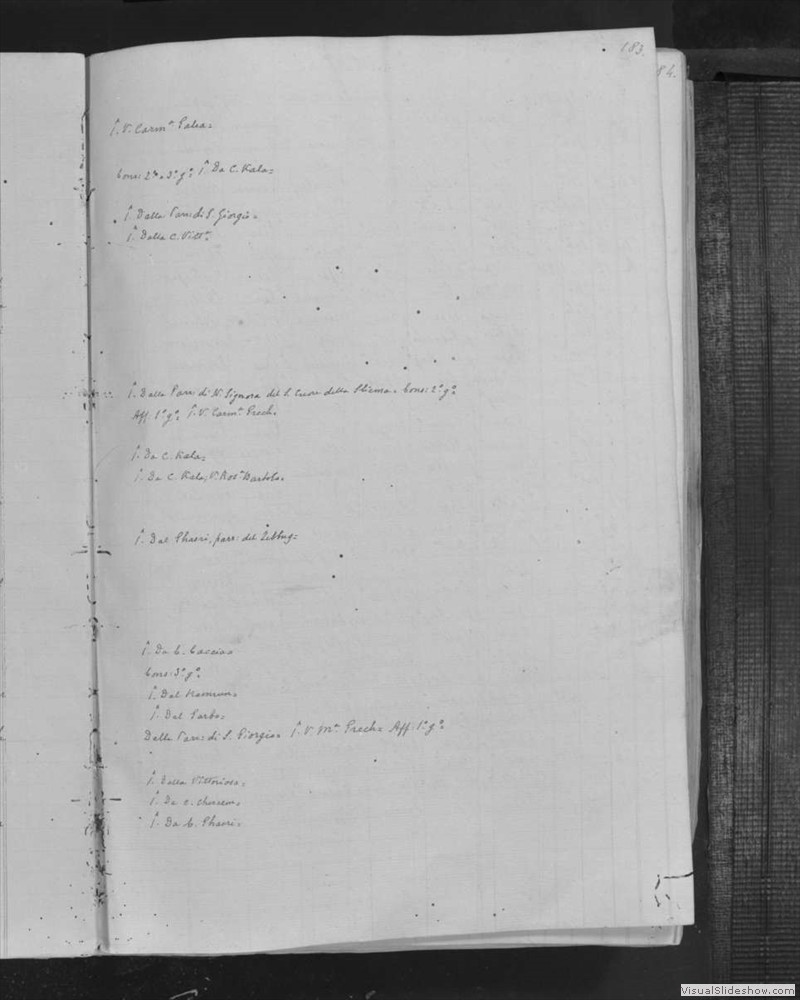 183.
84.
f. V. Carmª Galea=
Cons: 2º e 3º gº f. Da C. Kala=
f. Della Parr: di S. Giorgio=
f. Della C. Vittª
f. Della Parr: di N. Signora del S. Cuore della Sliema= Cons: 2º gº
Aff. 1º gº f. V. Carmª Grech=
f. Da C. Kala=
f. Da C. Kala, Vª Rosª Bartolo=
f. Dal Ghasri, parr: del Zebbug=
f. Da C. Caccia=
Cons: 3º gº
f. Dal Hamrun=
f. Dal Garbo=
Della Parr: di S. Giorgio= f. V. Mª Grech= Aff: 1º gº
f. Della Vittoriosa=
f. Da C.
f. Da C. Ghasri=
VisualSlideshow.com